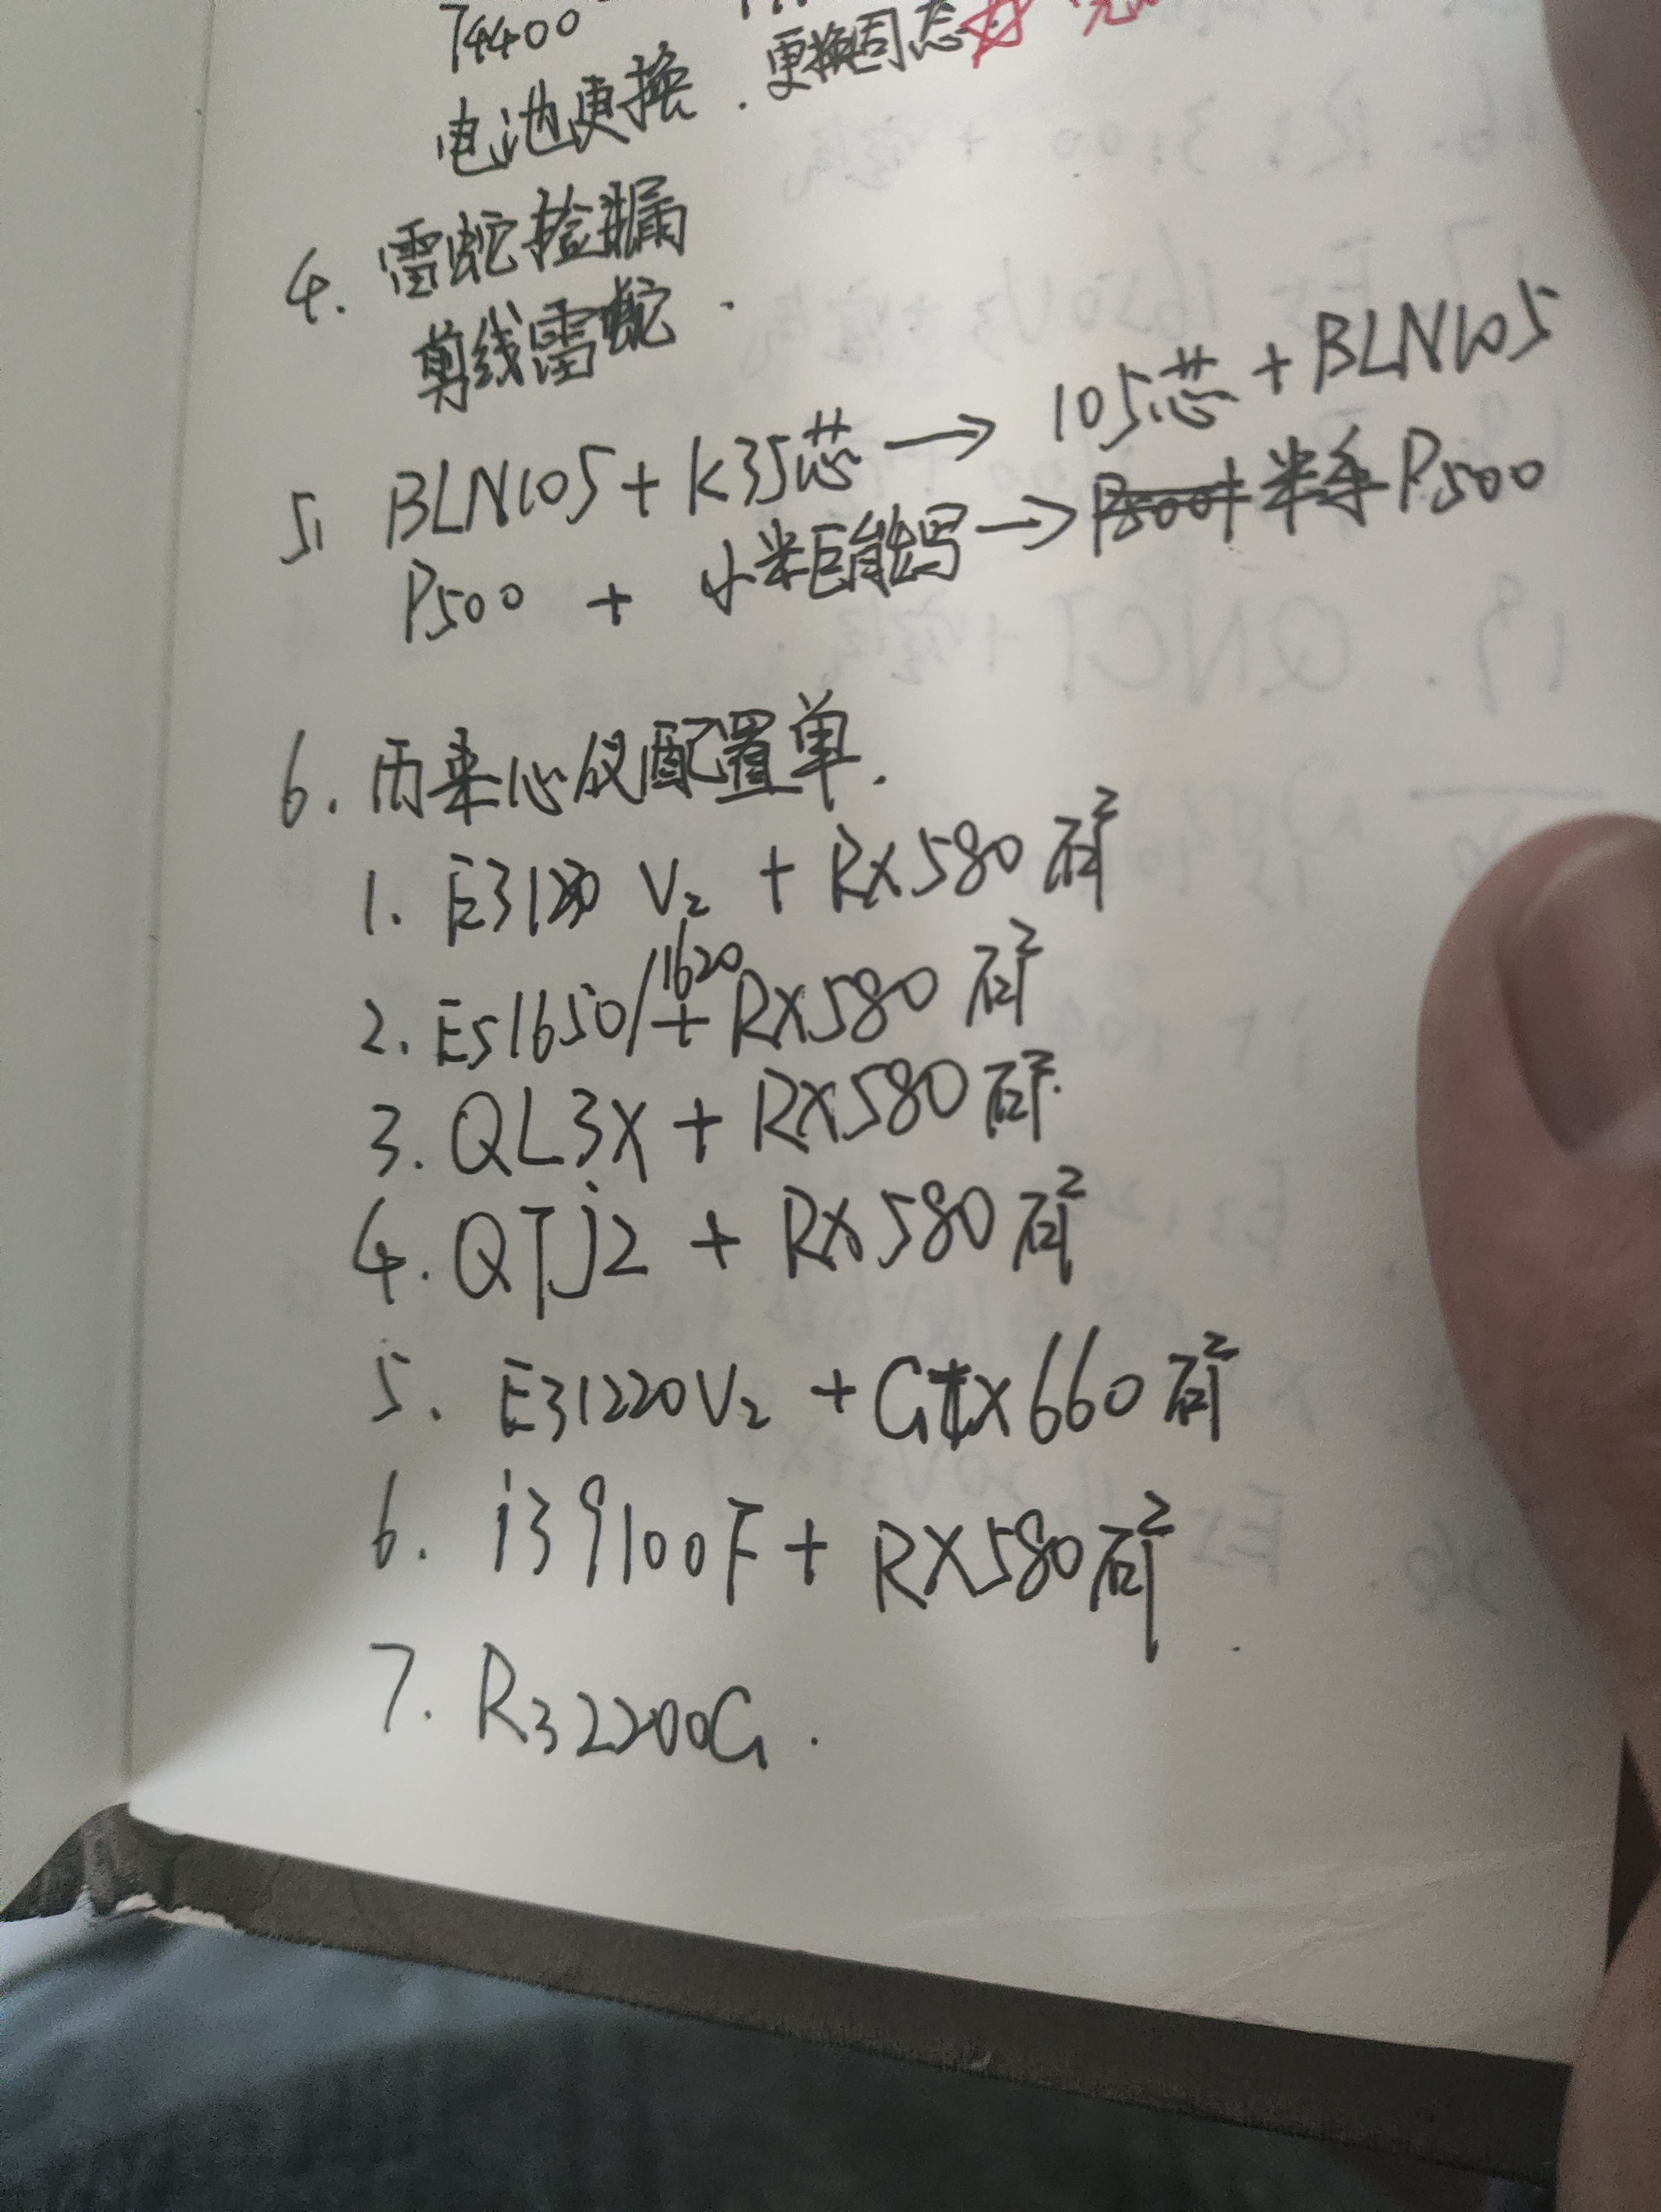 74400
电池更换.更换固态
4. 雷蛇捡漏
剪线雷蛇.
5. BLN105+K35芯→105芯+BLN105
P500 + 小米巨能写→P500+ 半条 P500
6. 历来心仪配置单.
1. E31230 V2 + RX580矿
2. E51650/1620+RX580矿
3. QL3X+RX580矿.
4. QTJ2 + RX580矿
5. E31220V2 +Gtx660矿
6. i39100F+RX580矿.
7. R32200G.